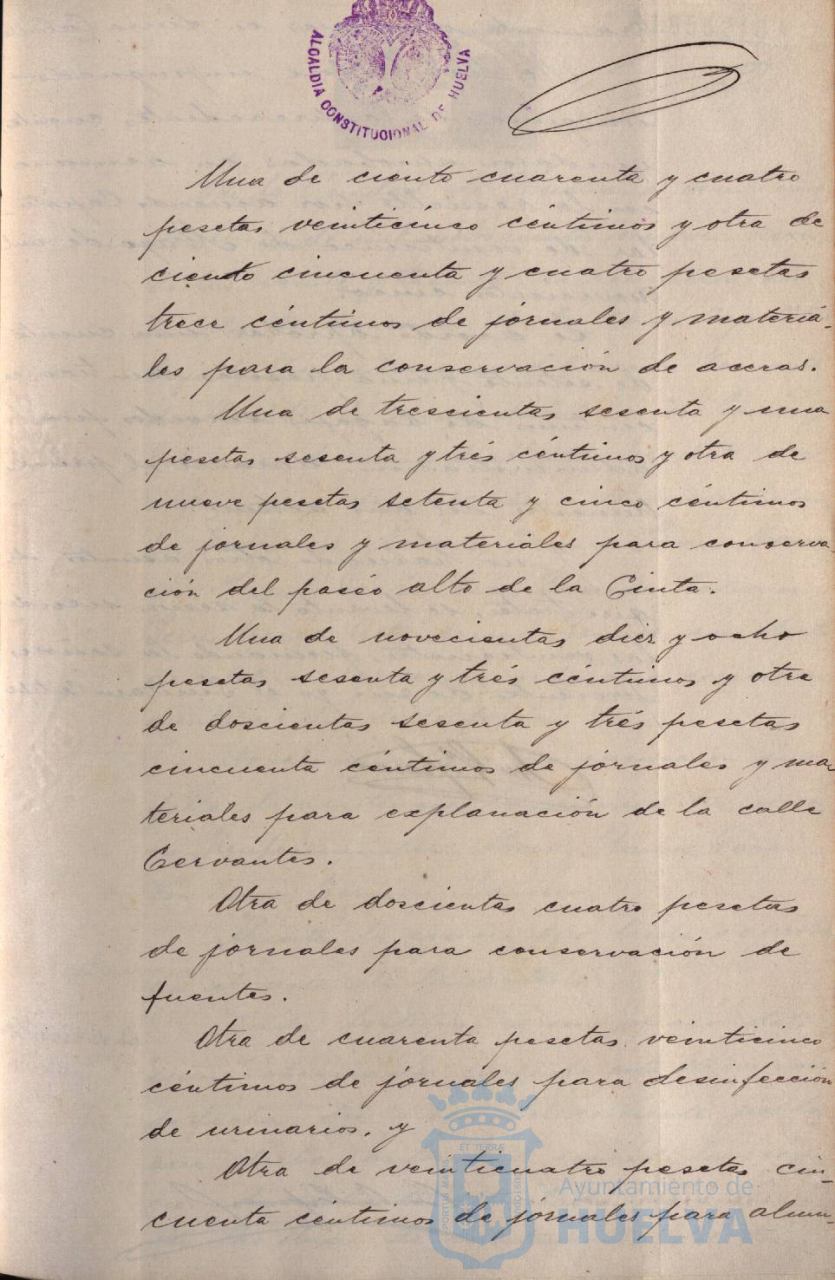 ALCALDIA CONSTITUCIONAL DE HUELVA
Una de ciento cuarenta y cuatro
pesetas veinticinco céntimos y otra de
ciento cincuenta y cuatro pesetas
trece céntimos de jornales y materiá-
les para la conservación de aceras.
Una de trescientas sesenta y una
pesetas sesenta y trés céntimos y otra de
nueve pesetas setenta y cinco céntimos
de jornales y materiales para conserva
ción del paséo alto de la Cinta.
Una de novecientas diez y ocho
pesetas sesenta y trés céntimos y otra
de doscientas sesenta y trés pesetas
cincuenta céntimos de jornales y ma-
teriales para explanación de la calle
Cervantes.
Otra de doscientas cuatro pesetas
de jornales para conservación de
fuentes.
Otra de cuarenta pesetas veinticinco
céntimos de jornales para desinfección
de urinarios, y
Otra de veinticuatro pesetas cin-
cuenta céntimos de jornales para alum-
Ayuntamiento de
HUELVA